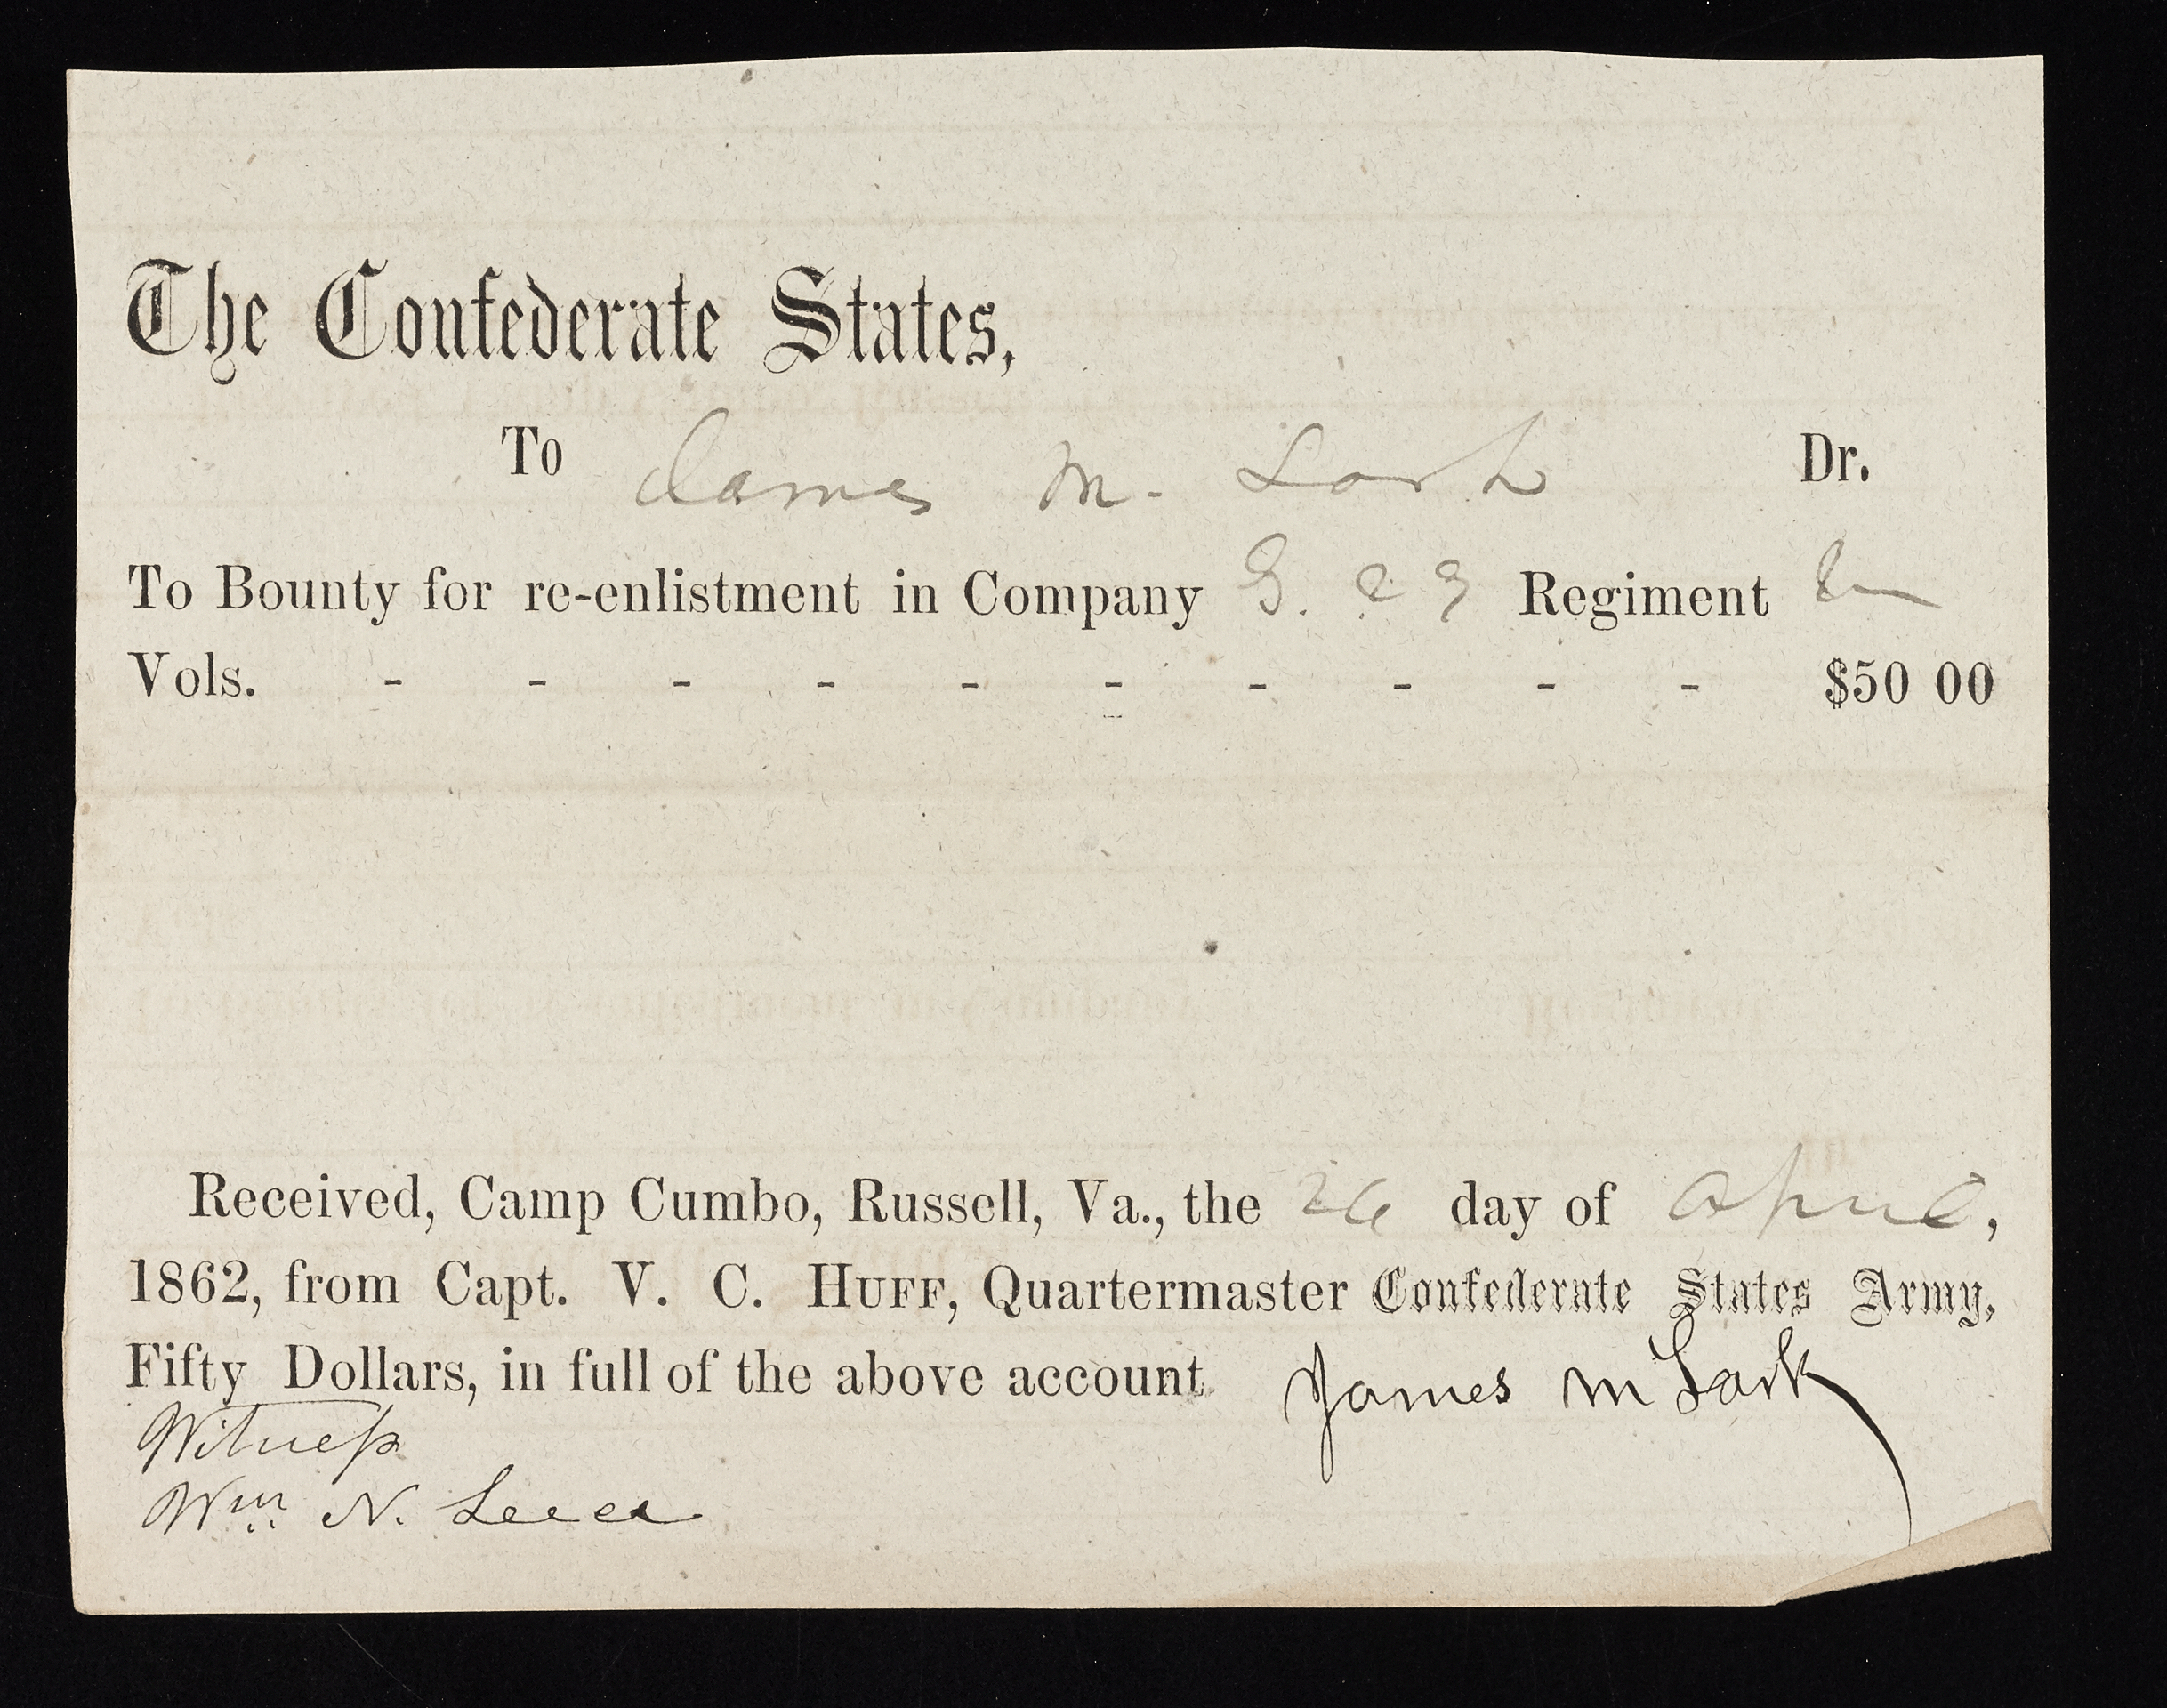 The Confederate States,
To James M. Lark Dr.
To Bounty for re-enlistment in Company G. 29 Regiment Va
Vols. - - - - - - - - - - $50 00
Received, Camp Cumbo, Russell, Va., the 26 day of April,
1862, from Capt. V. C. HUFF, Quartermaster Confederate States Army,
Fifty Dollars, in full of the above account James M Lark
Witness
Wm N.